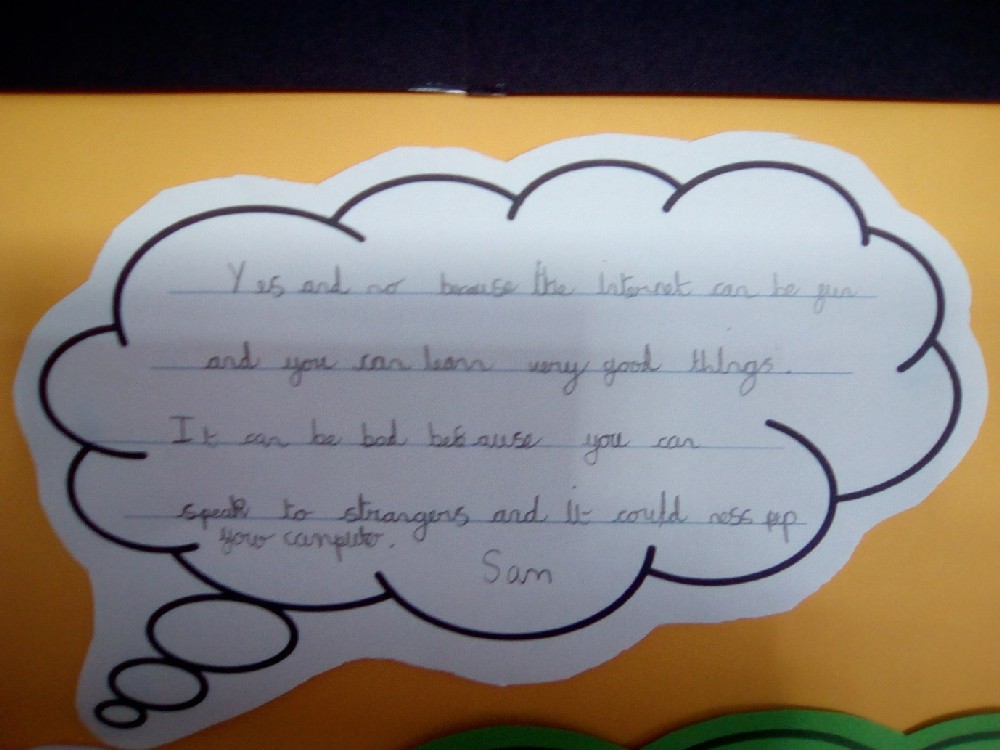 Yes and no because the internet can be gun
and you can learn very good things.
It can be bad because you can
speak to strangers and it could mess up
your computer.
Sam